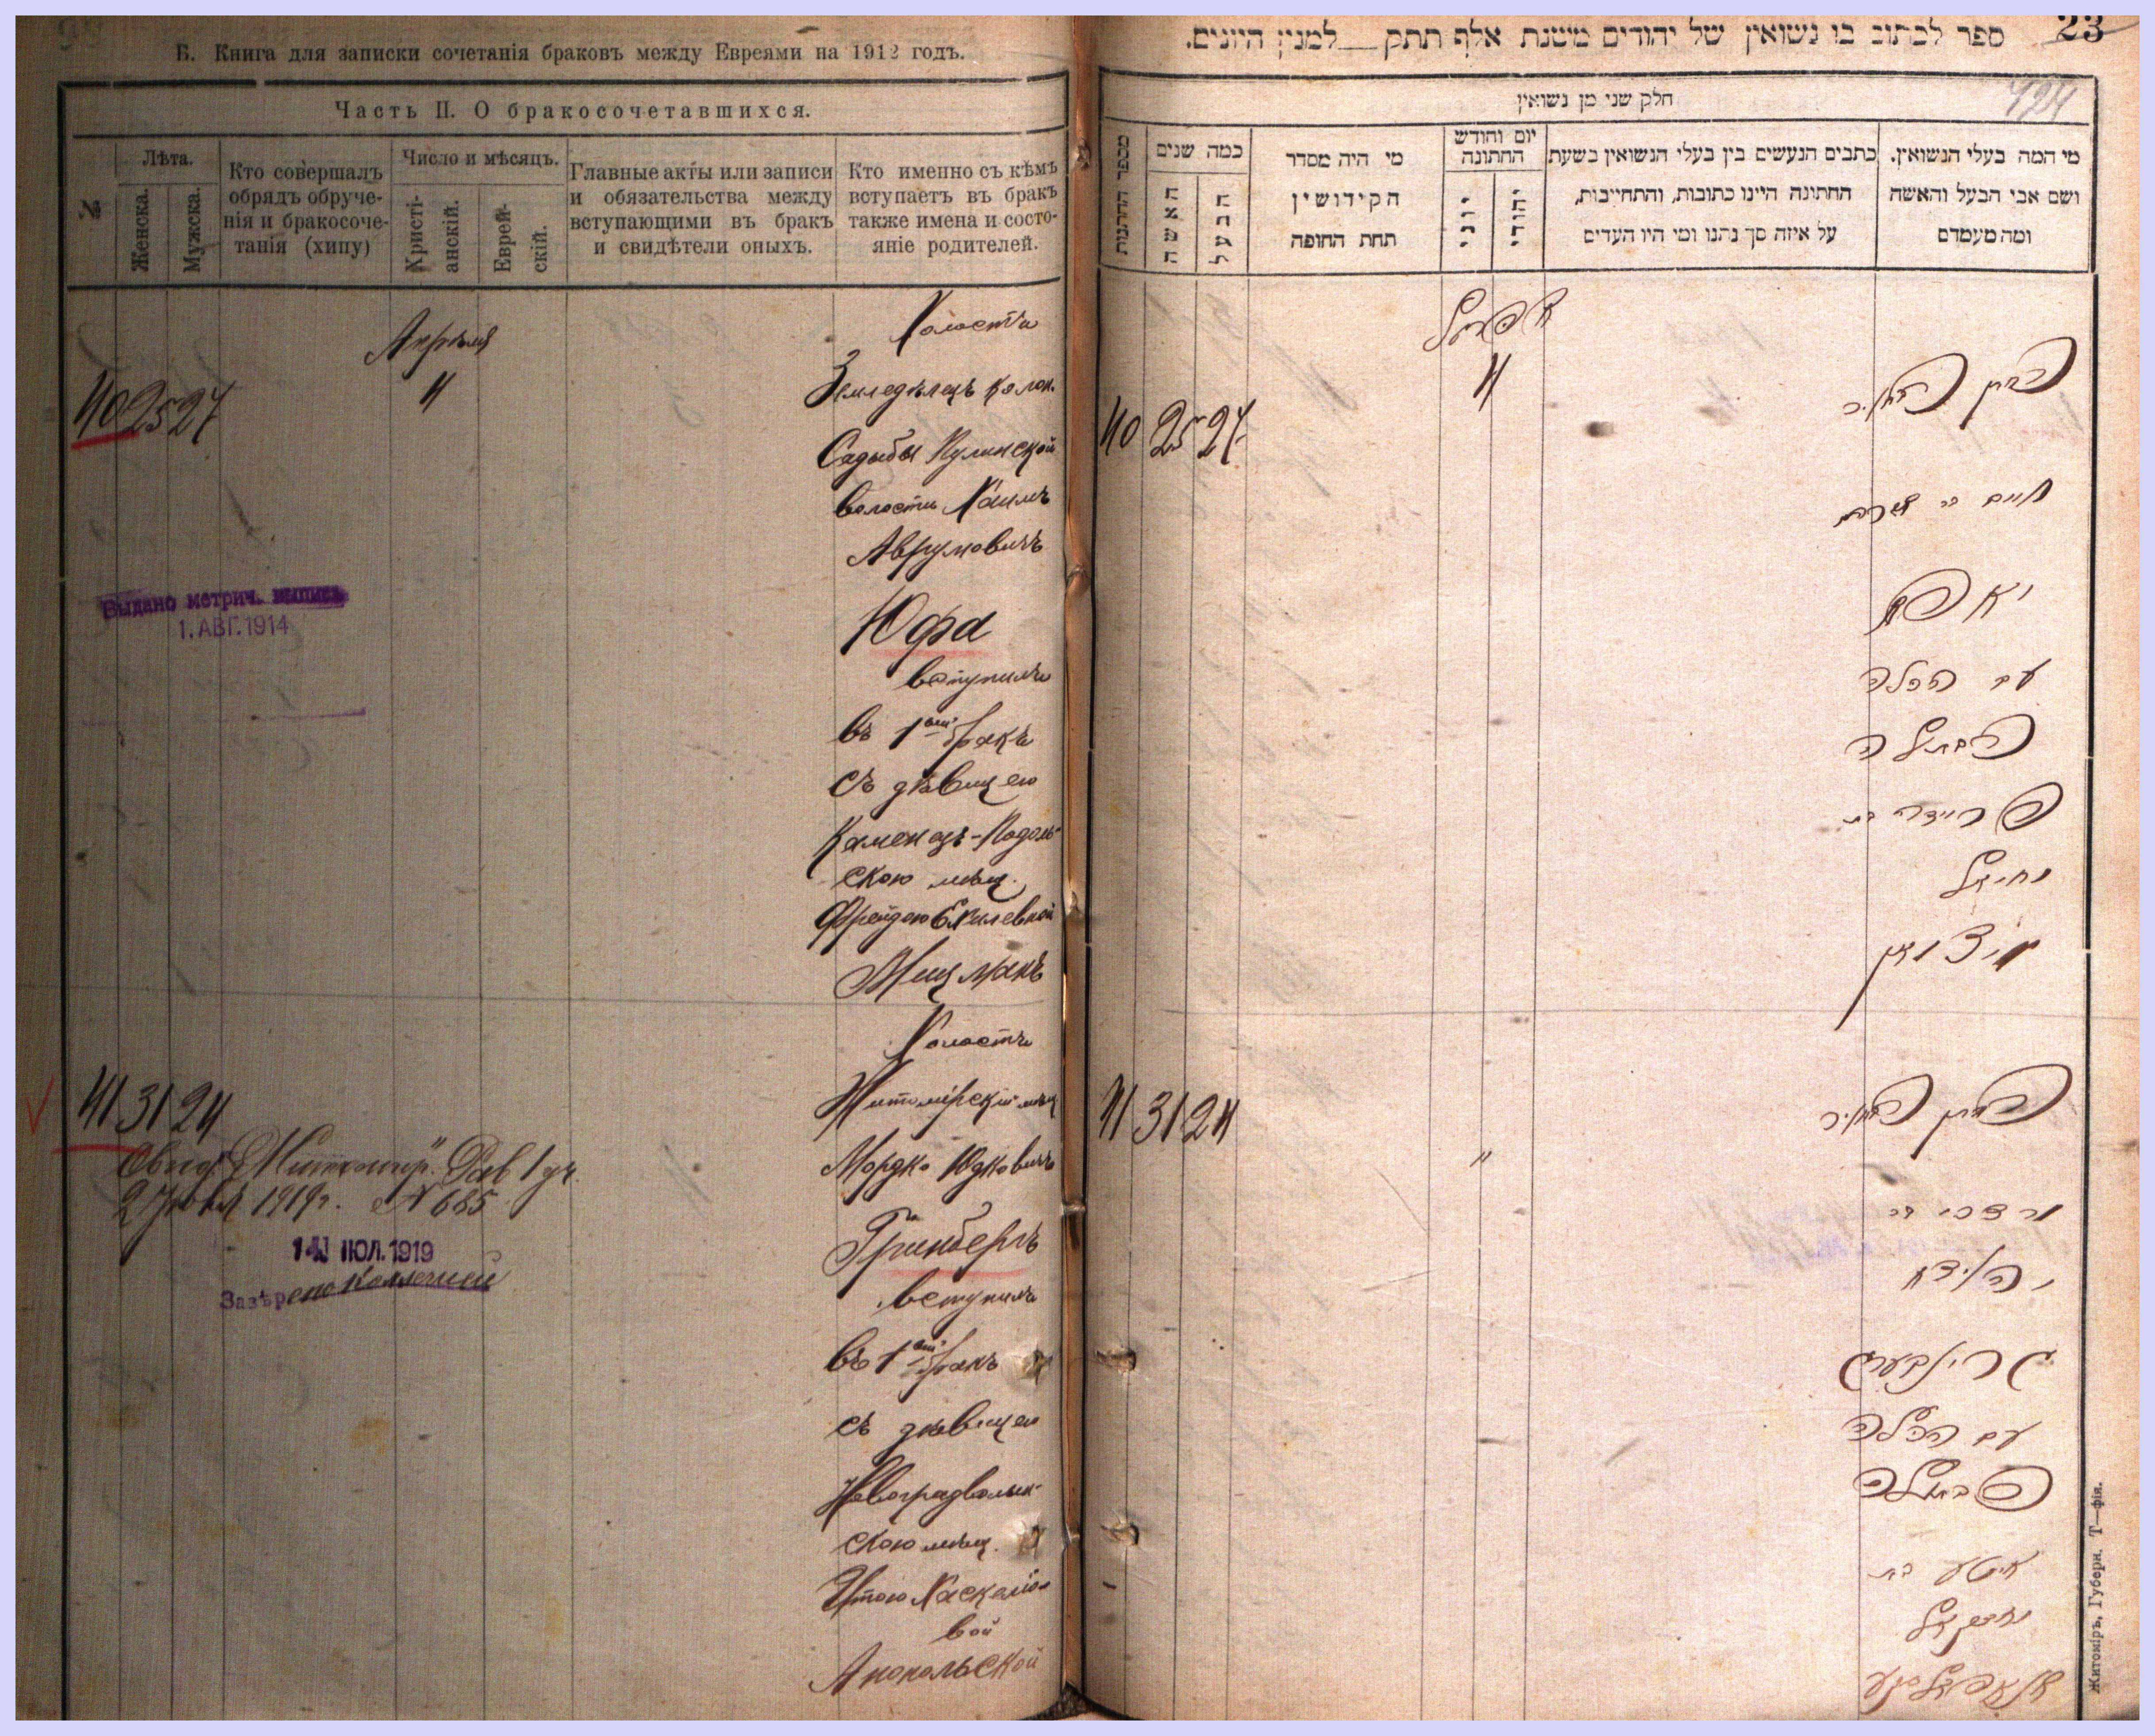 Б. Книга для записки сочетанія браковъ между Евреями на 1912 годъ.
Часть II. О бракосочетавшихся.
№
Лѣта.
Женска.
Мужска.
Кто совершалъ
обрядъ обруче-
нія и бракосоче-
танія (хипу)
Число и мѣсяцъ.
Христі-
анскій.
Еврей-
скій.
Главные акты или записи
и обязательства между
вступающими въ бракъ
и свидѣтели оныхъ.
Кто именно съ кѣмъ
вступаетъ въ бракъ
также имена и состо-
яніе родителей.
Апрѣля
40 25 27
4
Холостъ
Земледѣлецъ колон.
Садыбы Пулинской
волости Хаимъ
Аврумовичъ
Юфа
вступилъ
въ 1ый бракъ
съ дѣвицею
Каменецъ-Подоль-
скою мѣщ.
Фрейдою Ехилевной
Выдано метрич. выпись
1. АВГ. 1914
41 31 24
Холостъ
Житомірскій мѣщ
Мордко Юдковичъ
Гринбергъ
вступилъ
въ 1ый бракъ
съ дѣвицею
Новоградволын-
скою мѣщ.
Этою Хаскеліо-
вой
Анопольской
2 1919г. № 685
ІЮЛ. 1919
23
ספר לכתוב בו נשואין של יהודים משנת אלף תתק למנין היונים.
124
חלק שני מן נשואין
מספר החתנות
כמה שנים
האשה
הבעל
מי היה מסדר
הקידושין
תחת החופה
יום וחודש
החתונה
יוני
יהודי
כתבים הנעשים בין בעלי הנשואין בשעת
החתונה היינו כתובות, והתחייבות,
על איזה סך נתנו ומי היו העדים
מי המה בעלי הנשואין.
ושם אבי הבעל והאשה
ומה מעמדם
אפריל
40 25 27
4
חיים בר אברהם
יאפע
עם הכלה
הבתולה
פריידה בת
יחיאל
41 31 24
"
מרדכי בר
יהודא
גרינבערג
עם הכלה
הבתולה
איטע בת
יחזקאל
Житоміръ, Губерн. Т—фія.